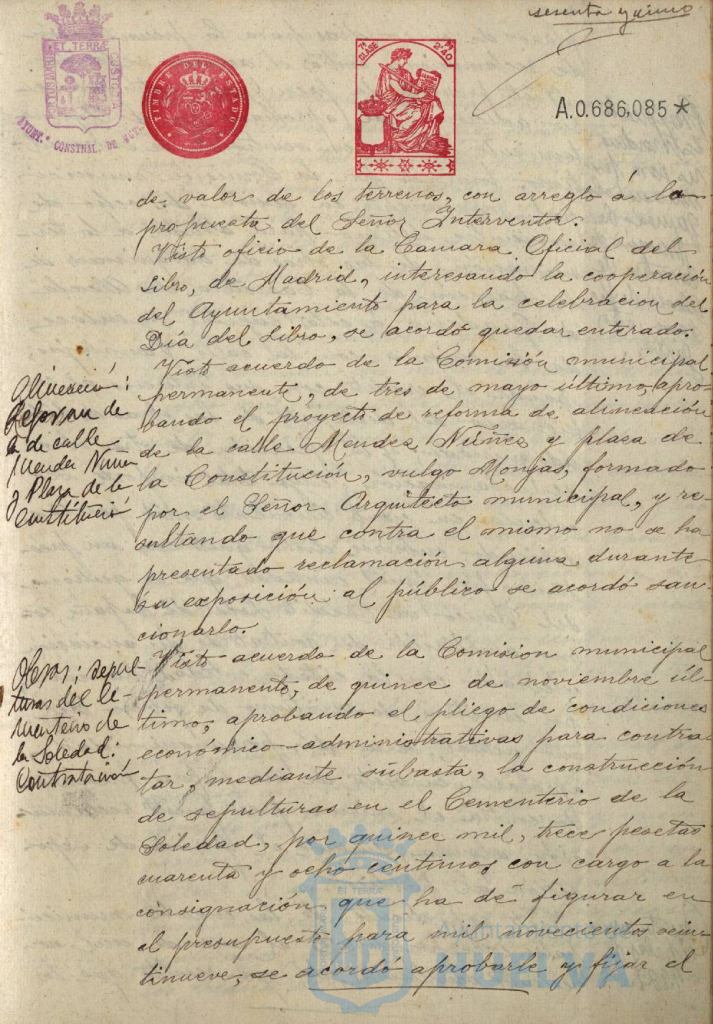 sesenta y cinco
PORTUS MARIS ET TERRAE CUSTODIA
AYUNT. CONSTNAL. DE HUELVA
TIMBRE DEL ESTADO
7ª CLASE
2'40
A.0.686,085*
de valor de los terrenos, con arreglo á la
propuesta del Señor Interventor.
Visto oficio de la Camara Oficial del
Libro, de Madrid, interesando la cooperación
del Ayuntamiento para la celebracion del
Día del Libro, se acordó quedar enterado.
Alineació:
Reforma de
la de calle
Mendez Nuñez
y Plaza de la
Constitució
Visto acuerdo de la Comisión municipal
permanente, de tres de mayo último, apro-
bando el proyecto de reforma de alineación
de la calle Mendez Núñez y plaza de
la Constitución, vulgo Monjas, formado
por el Señor Arquitecto municipal, y re-
sultando que contra el mismo no se ha
presentado reclamación alguna durante
su exposición al público se acordó san-
cionarlo.
Obras: sepul-
turas del Ce-
menterio de
la Soledad:
Contratación
Visto acuerdo de la Comision municipal
permanente, de quince de noviembre úl-
timo, aprobando el pliego de condiciones
económico-administrativas para contra-
tar, mediante subasta, la construcción
de sepulturas en el Cementerio de la
Soledad, por quince mil, trece pesetas
cuarenta y ocho céntimos con cargo a la
consignación que ha de figurar en
el presupuesto para mil novecientos vein-
tinueve, se acordó aprobarle y fijar el
Ayuntamiento de
HUELVA